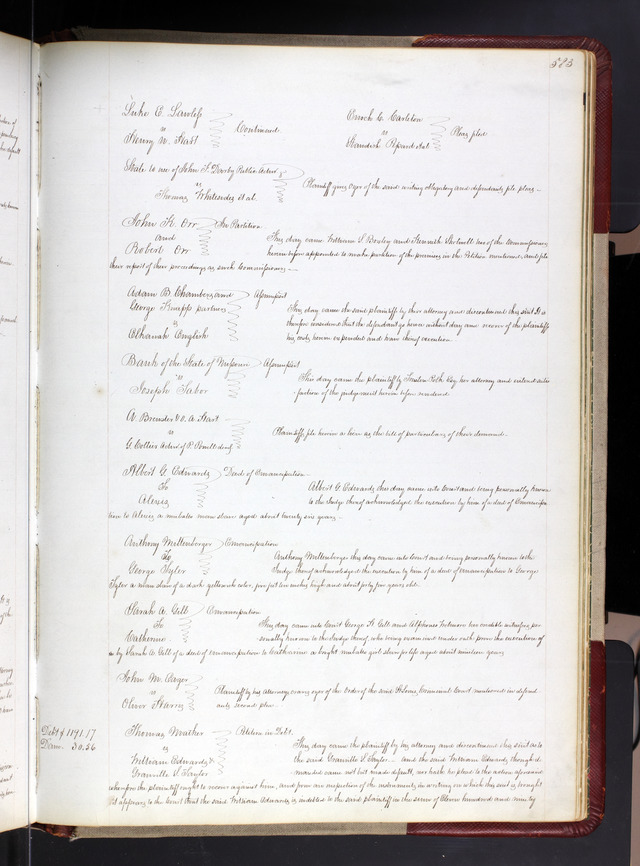 583
Luke E. Lawless
vs
Henry N. Hart
Continued.
Enoch C. Carleton
vs
Standish Ryan et al
Pleas filed
State to use of John F. Darby Public Admr
vs
Thomas Whitesides et al.
Plaintiff gives oyer of the said writing obligatory and defendants file pleas
John K. Orr
and
Robert Orr
In Partition.
This day came William S. Bosley and two of the Commissioners
herein before appointed to make partition of the premises in the Petition mentioned, and file
their report of their proceedings as such Commissioners
Adam B. Chambers, and
George Knapp partners
vs
Elkanah English
Assumpsit
This day came the said plaintiffs by their attorney and discontinued this suit It is
therefore considered that the defendant go hence without day and recover of the plaintiffs
his costs herein expended and have thereof execution.
Bank of the State of Missouri
vs
Joseph Tabor
Assumpsit
This day came the plaintiff by Esq. her attorney and entered satis
faction of the judgement herein before rendered
A. Brewster & A. Hart
vs
G. Collier Admr of P. Powell decd
Plaintiffs file herein a box as the bill of particulars of their demand.
Albert G. Edwards
To
Alexis
Deed of Emancipation
Albert G. Edwards this day came into Court and being personally known
to the Judge thereof acknowledged the execution by him of a deed of Emancipa
tion to Alexis a mulatto man slave aged about twenty six years
Anthony Miltenberger
To
George Tyler
Emancipation
Anthony Miltenberger this day came into Court and being personally known to the
Judge thereof acknowledged the execution by him of a deed of emancipation to George
Tyler a man slave of a dark yellowish color, five feet ten inches high and about forty five years old.
Sarah A. Gell
To
Catherine.
Emancipation
This day came into Court George F. Gell and Alphonso Wetmore two credible witnesses per
sonally known to the Judge thereof, who being examined under oath prove the execution of
a by Sarah A. Gell of a deed of emancipation to Catharine a bright mulatto girl slave for life aged about nineteen years
John M.
vs
Oliver Harris
Plaintiff by his Attorney craves oyer of the Order of the said Criminal Court mentioned in defend
ants second plea
Debt \$ 1191.17
Dam. 30.56
Thomas Mather
vs
William Edwards &
Granville S. Taylor
Petition in Debt.
This day came the plaintiff by his attorney and discontinued this suit as to
the said Granville S. Taylor and the said William Edwards though de
manded came not but made default, nor hath he plead to the action aforesaid
wherefore the plaintiff ought to recover against him, and from an inspection of the instrument in writing on which this suit is brought
it appears to the Court that the said William Edwards is indebted to the said plaintiff in the sum of Eleven hundred and ninety